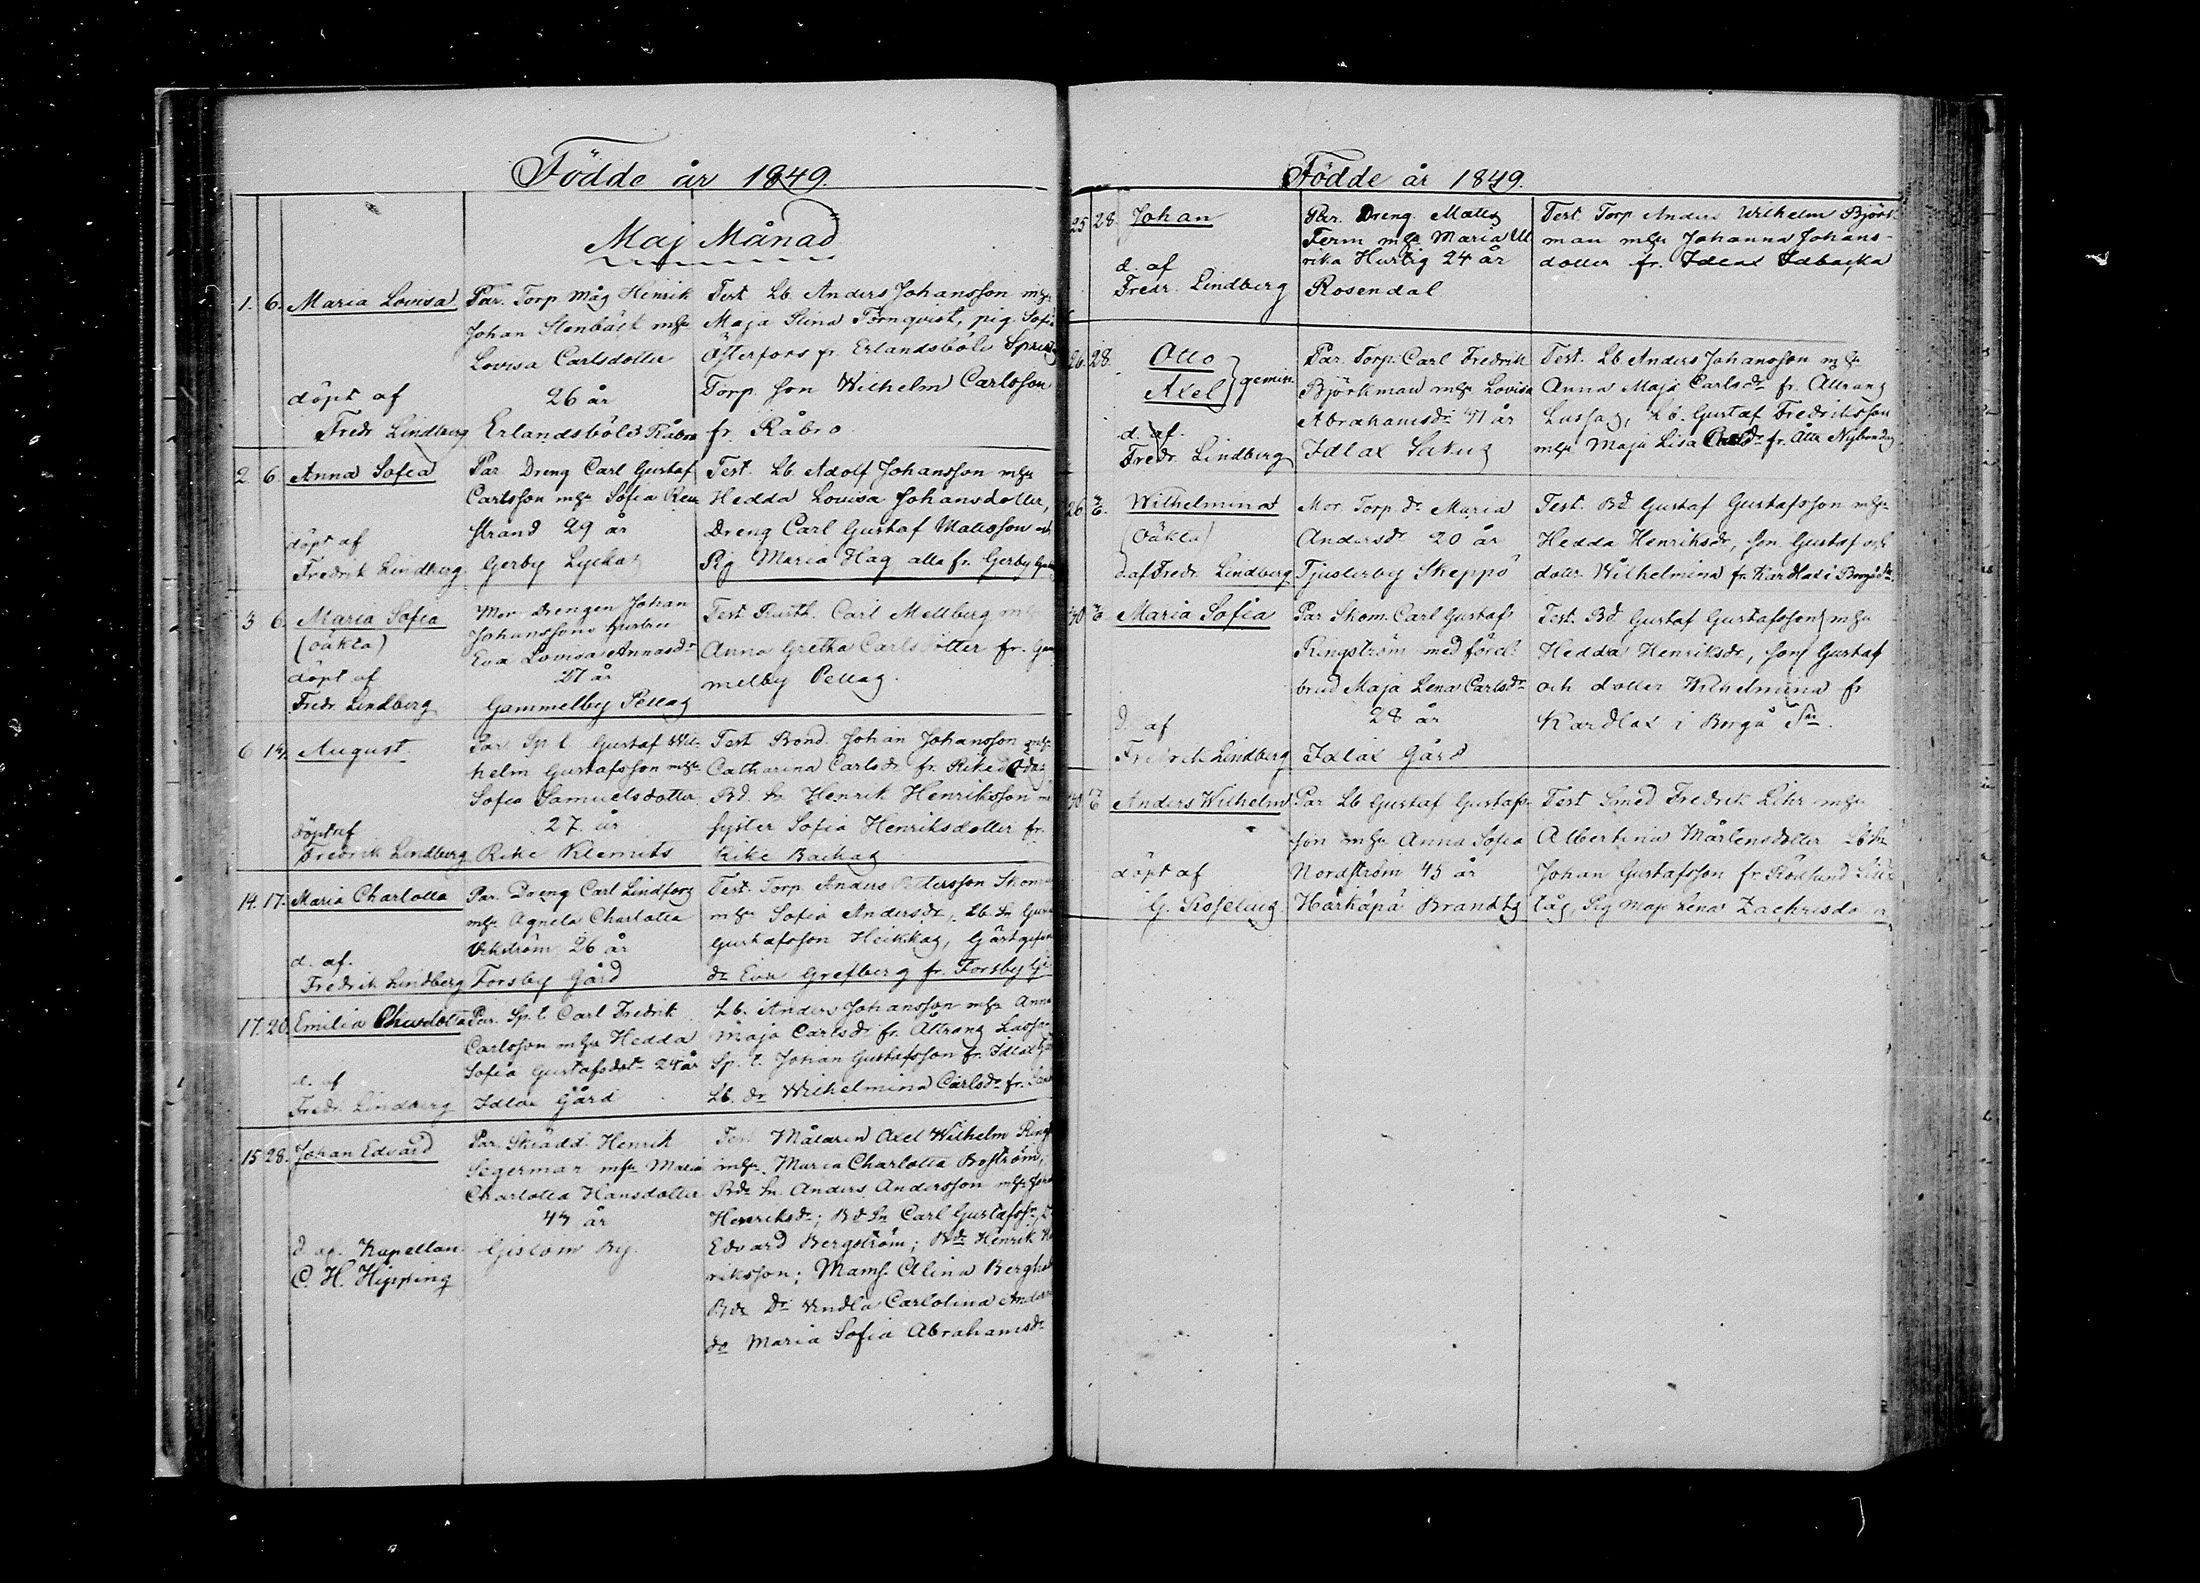 Födde år 1849.
Maj Månad
1. 6. Maria Lovisa
döpt af
Fredr. Lindberg
Par. Torp. måg Henrik
Johan Stenbäck m.hu
Lovisa Carlsdotter
26 år
Erlandsböle Råbro
Test. Lb. Anders Johansson m.hu
Maja Stina Törnqvist, pig. Sofia
Österfors fr. Erlandsböle
Torp. son Wilhelm Carlsson
fr. Råbro
2 6. Anna Sofia
döpt af
Fredrik Lindberg
Par Dreng Carl Gustaf
Carlsson m.hu Sofia
strand 29 år
Gerby
Test. Lb. Adolf Johansson m.hu
Hedda Lovisa Johansdotter,
Dreng Carl Gustaf Mattsson
Pig Maria Hag alla fr. Gerby
3 6. Maria Sofia
(oäkta)
döpt af
Fredr. Lindberg
Mor. Drengen Johan
Johanssons hustru
Eva Lovisa Annasdr
27 år
Gammelby Pellas
Test. Rusth. Carl Mellberg
Anna Gretha Carlsdotter fr. Gam
melby Pellas.
6 14. August.
döpt af
Fredrik Lindberg
Par Sp.t. Gustaf Wil-
helm Gustafsson m.hu
Sofia Samuelsdotter
27 år
Rike Klemets
Test Bond. Johan Johansson m.hu
Catharina Carlsdr fr. Rike
Bd. Sn Henrik Henriksson
syster Sofia Henriksdotter fr.
Rike Backas
14. 17. Maria Charlotta
d. af.
Fredrik Lindberg
Par. Dreng Carl Lindfors
m.hu Agneta Charlotta
26 år
Forsby Gård
Test. Torp. Anders Pettersson
m.hu Sofia Andersdr, Lb. Sn
Gustafsson Heikkas,
dr Eva Grefberg fr. Forsby
17. 20. Emilia Charlotta
d. af
Fredr. Lindberg
Par. Sp.t. Carl Fredrik
Carlsson m.hu Hedda
Sofia Gustafsdotr 24 år
Idlax Gård
Lb. Anders Johansson m.hu Anna
Maja Carlsdr fr. Åttrang
Sp.t. Johan Gustafsson fr. Idlax
Lb. dr Wilhelmina Carlsdr fr.
15 28. Johan Edvard
d. af. Kapellan
C. H. Hipping
Par. Skrädd. Henrik
Segerman m.hu Maria
Charlotta Hansdotter
By.
Test Målaren Axel Wilhelm
m.hu Maria Charlotta Boström,
Bde Sn. Anders Andersson
Henriksdr; Bd Sn Carl Gustafsson,
Edvard Bergström; Bde Henrik
riksson; Mams. Alina
Bde Dr Wendla Carolina
do Maria Sofia Abrahamsdr
Födde år 1849.
25 28. Johan
d. af
Fredr. Lindberg
Par. Dreng. Matts
Ferm m.hu Maria Ul
rika Hurtig 24 år
Rosendal
Test. Torp. Anders Wilhelm Björk-
man m.hu Johanna Johans-
dotter fr. Idlax Idbacka
26. 28. Otto
Axel } gemin.
d. af.
Fredr. Lindberg
Par. Torp. Carl Fredrik
Björkman m.hu Lovisa
Abrahamsdr 41 år
Idlax
Test. Lb. Anders Johansson m.hu
Anna Maja Carlsdr fr. Åttrang
Lassas, Lb. Gustaf Fredriksson
m.hu Maja Lisa
26 Wilhelmina
(oäkta)
d. af Fredr. Lindberg
Mor. Torp. dr Maria
Andersdr 20 år
Tjusterby Skeppö
Test. Bd Gustaf Gustafsson m.hu
Hedda Henriksdr, son Gustaf och
dottr. Wilhelmina fr. Kardlax i Borgå Sn
30 Maria Sofia
d. af
Fredrik Lindberg
Par Skom. Carl Gustaf
Ringström med förel.
brud Maja Lena Carlsdr
28 år
Idlax Gård
Test. Bd. Gustaf Gustafsson m.hu
Hedda Henriksdr, son Gustaf
och dotter Wilhelmina fr
Kardlax i Borgå Sn.
30 Anders Wilhelm
döpt af
Par Lb Gustaf Gustafs-
son m.hu Anna Sofia
Nordström 45 år
Härkäpä
Test Smed Fredrik Lihr m.hu
Albertina Mårtensdotter Lb Sn
Johan Gustafsson fr. Rödsund
Pig Maja Lena Zachrisdotter